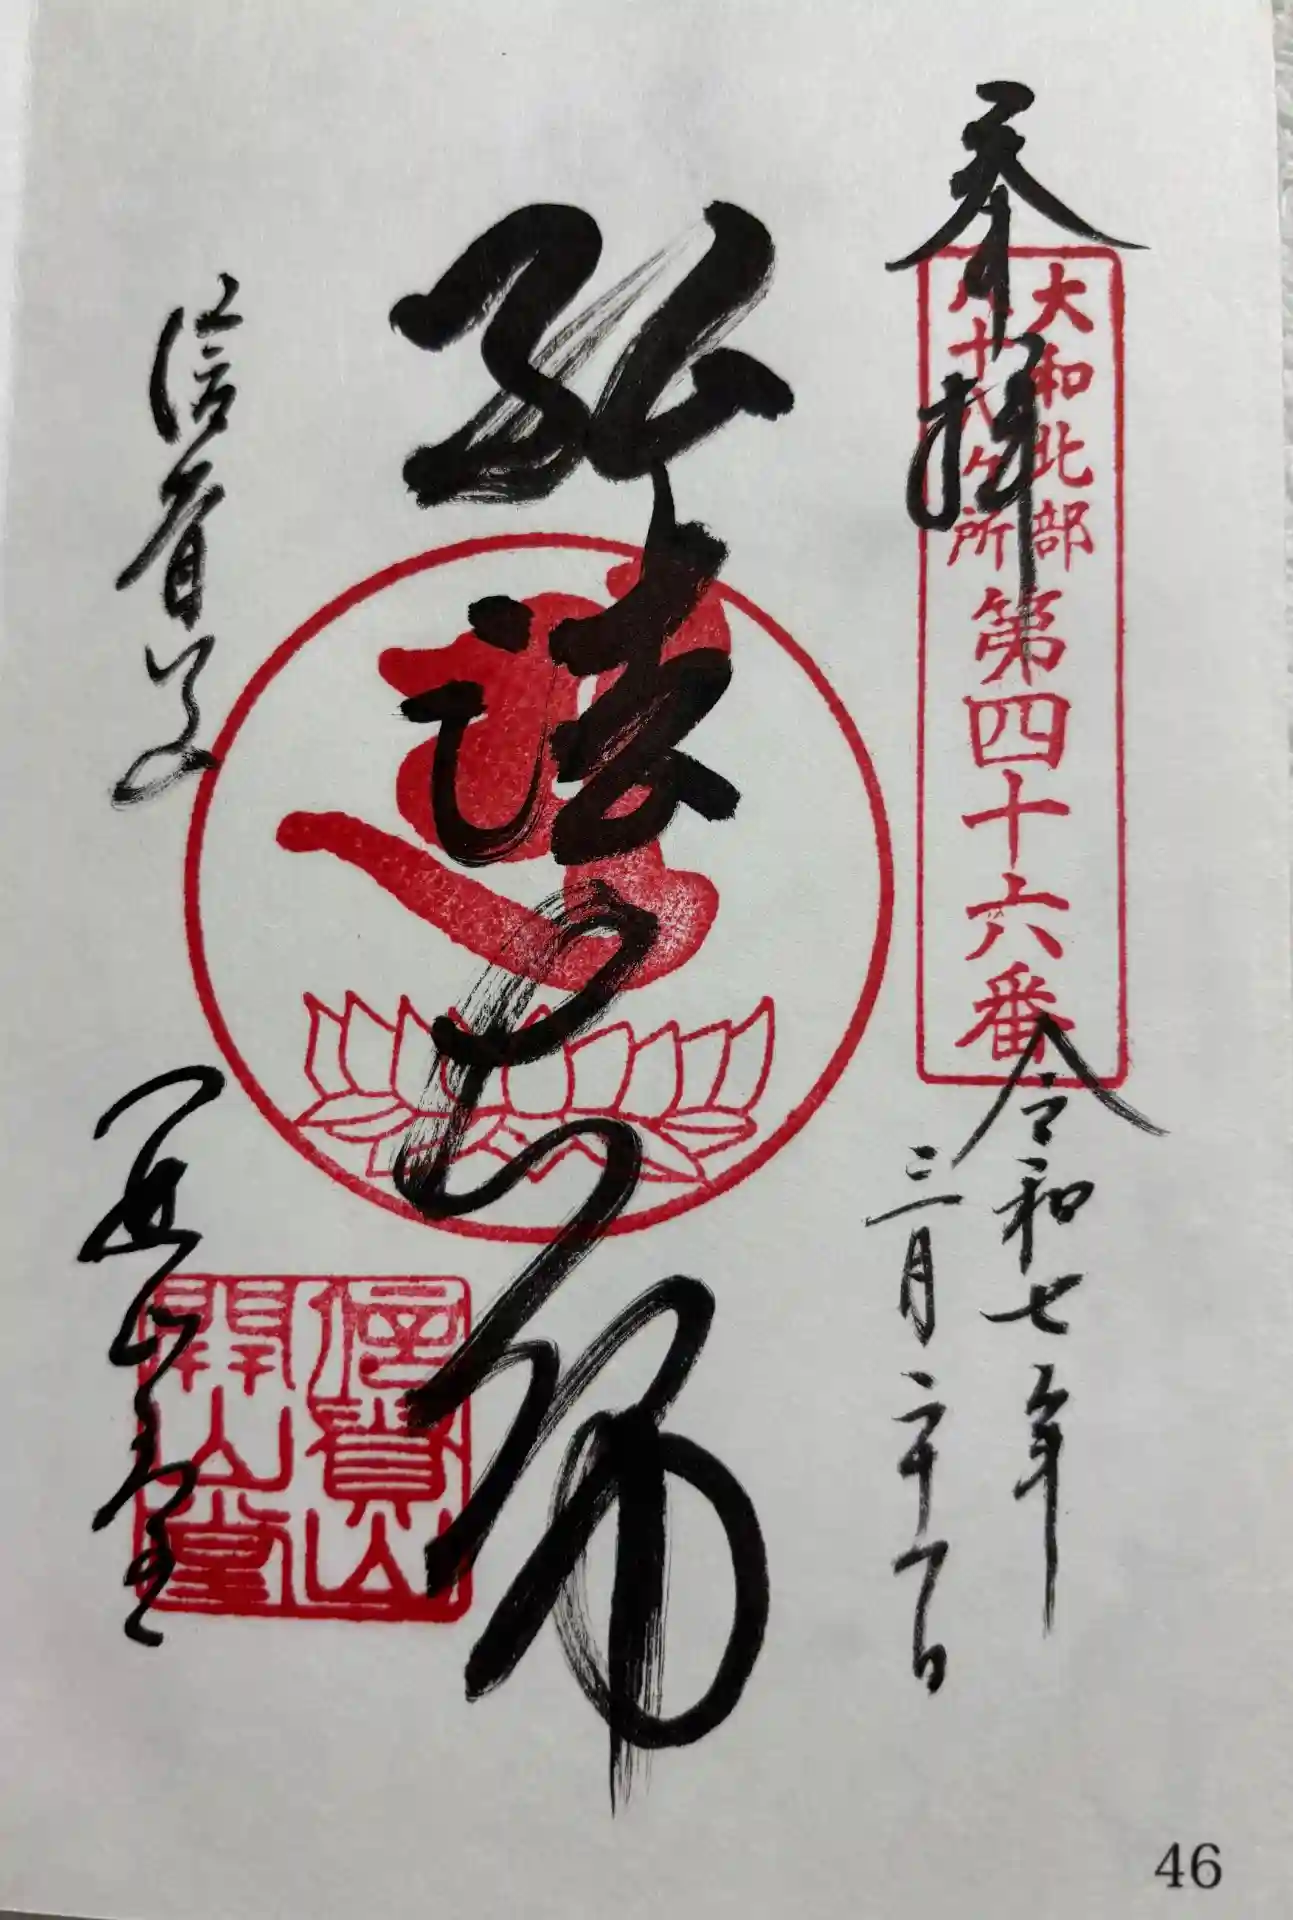 奉拝
大和北部
八十八ヶ所
第四十六番
令和七年
三月二十日
弘法大師
信貴山
開山堂
信貴山
開山堂
46